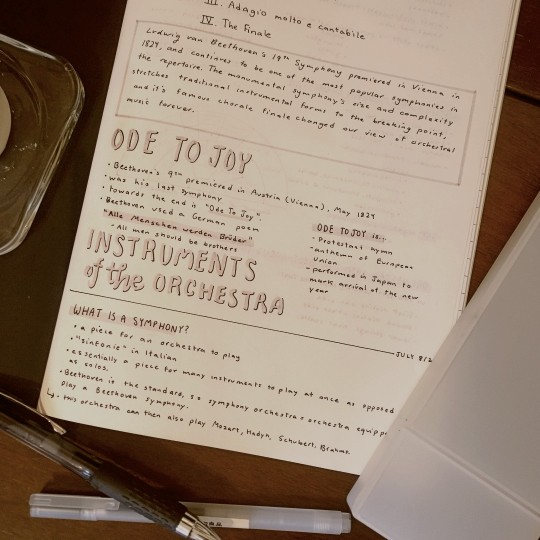 III. Adagio molto e cantabile
IV. The Finale
Ludwig van Beethoven's 9th Symphony premiered in Vienna in
1824, and continues to be one of the most popular symphonies in
the repertoire. The monumental symphony's size and complexity
stretches traditional instrumental forms to the breaking point,
and it's famous chorale finale changed our view of orchestral
music forever.
ODE TO JOY
• Beethoven's 9th premiered in Austria (Vienna), May 1824
• was his last symphony
• towards the end is "Ode To Joy".
• Beethoven used a German poem
"Alle Menschen werden Brüder"
- All men should be brothers
ODE TO JOY IS:
- Protestant hymn
- anthem of European
Union
- performed in Japan to
mark arrival of the new
year
INSTRUMENTS
of the ORCHESTRA
JULY 8/2
WHAT IS A SYMPHONY?
• a piece for an orchestra to play
• "sinfonie" in Italian
• essentially a piece for many instruments to play at once as opposed
as solos.
• Beethoven is the standard, so symphony orchestras orchestra equipp
play a Beethoven symphony.
↳ • this orchestra can then also play Mozart, Hadyn, Schubert, Brahms